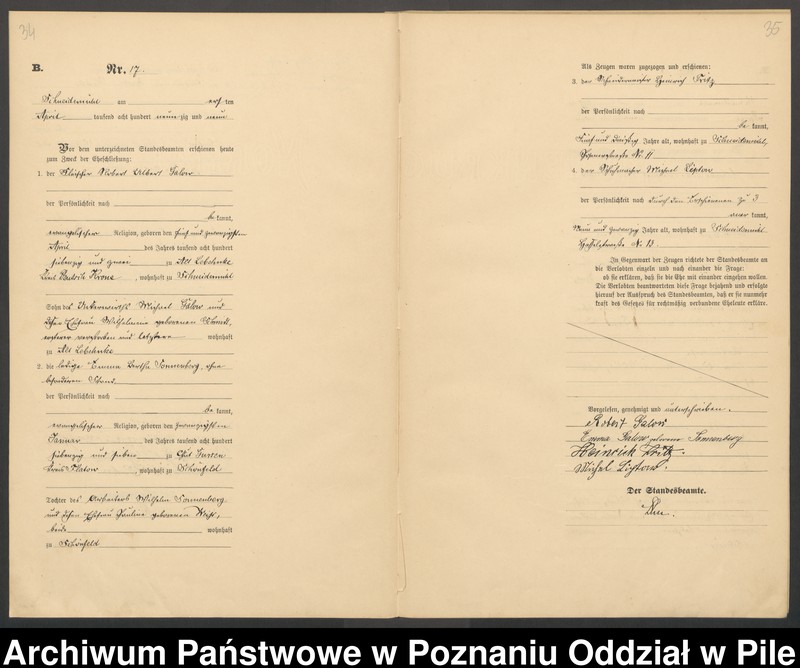 34
B. Nr. 17.
Schneidemühl am ersten
April tausend acht hundert neunzig und neun
Vor dem unterzeichneten Standesbeamten erschienen heute
zum Zweck der Eheschließung:
1. der Fleischer Robert Albert Galow
der Persönlichkeit nach
be kannt,
evangelischer Religion, geboren den fünf und zwanzigsten
April des Jahres tausend acht hundert
siebenzig und zwei zu Alt Lobehnke
Kreis Deutsch Krone, wohnhaft zu Schneidemühl
Sohn des Michael Galow und
Ehefrau Wilhelmine geborenen
verstorben und letztere wohnhaft
zu Alt Lobehnke
2. die ledige Emma Bertha Sonnenberg, ohne
besonderen Stand
der Persönlichkeit nach
be kannt,
evangelischer Religion, geboren den zwanzigsten
Januar des Jahres tausend acht hundert
siebenzig und sieben zu Gut
Kreis Flatow, wohnhaft zu Schönfeld
Tochter des Arbeiters Wilhelm Sonnenberg
und Ehefrau Pauline geborenen
beide wohnhaft
zu Schönfeld
35
Als Zeugen waren zugezogen und erschienen:
3. der Heinrich Fritz
der Persönlichkeit nach
be kannt,
fünf und dreißig Jahre alt, wohnhaft zu Schneidemühl,
Nr. 11
4. der Schuhmacher Michael
der Persönlichkeit nach durch den Erschienenen zu 3
aner kannt,
neun und zwanzig Jahre alt, wohnhaft zu Schneidemühl
Nr. 13.
In Gegenwart der Zeugen richtete der Standesbeamte an
die Verlobten einzeln und nach einander die Frage:
ob sie erklären, daß sie die Ehe mit einander eingehen wollen.
Die Verlobten beantworteten diese Frage bejahend und erfolgte
hierauf der Ausspruch des Standesbeamten, daß er sie nunmehr
kraft des Gesetzes für rechtmäßig verbundene Eheleute erkläre.
Vorgelesen, genehmigt und unterschrieben.
Robert Galow
Emma Galow geborene Sonnenberg
Heinrich Fritz.
Michal
Der Standesbeamte.
Archiwum Państwowe w Poznaniu Oddział w Pile